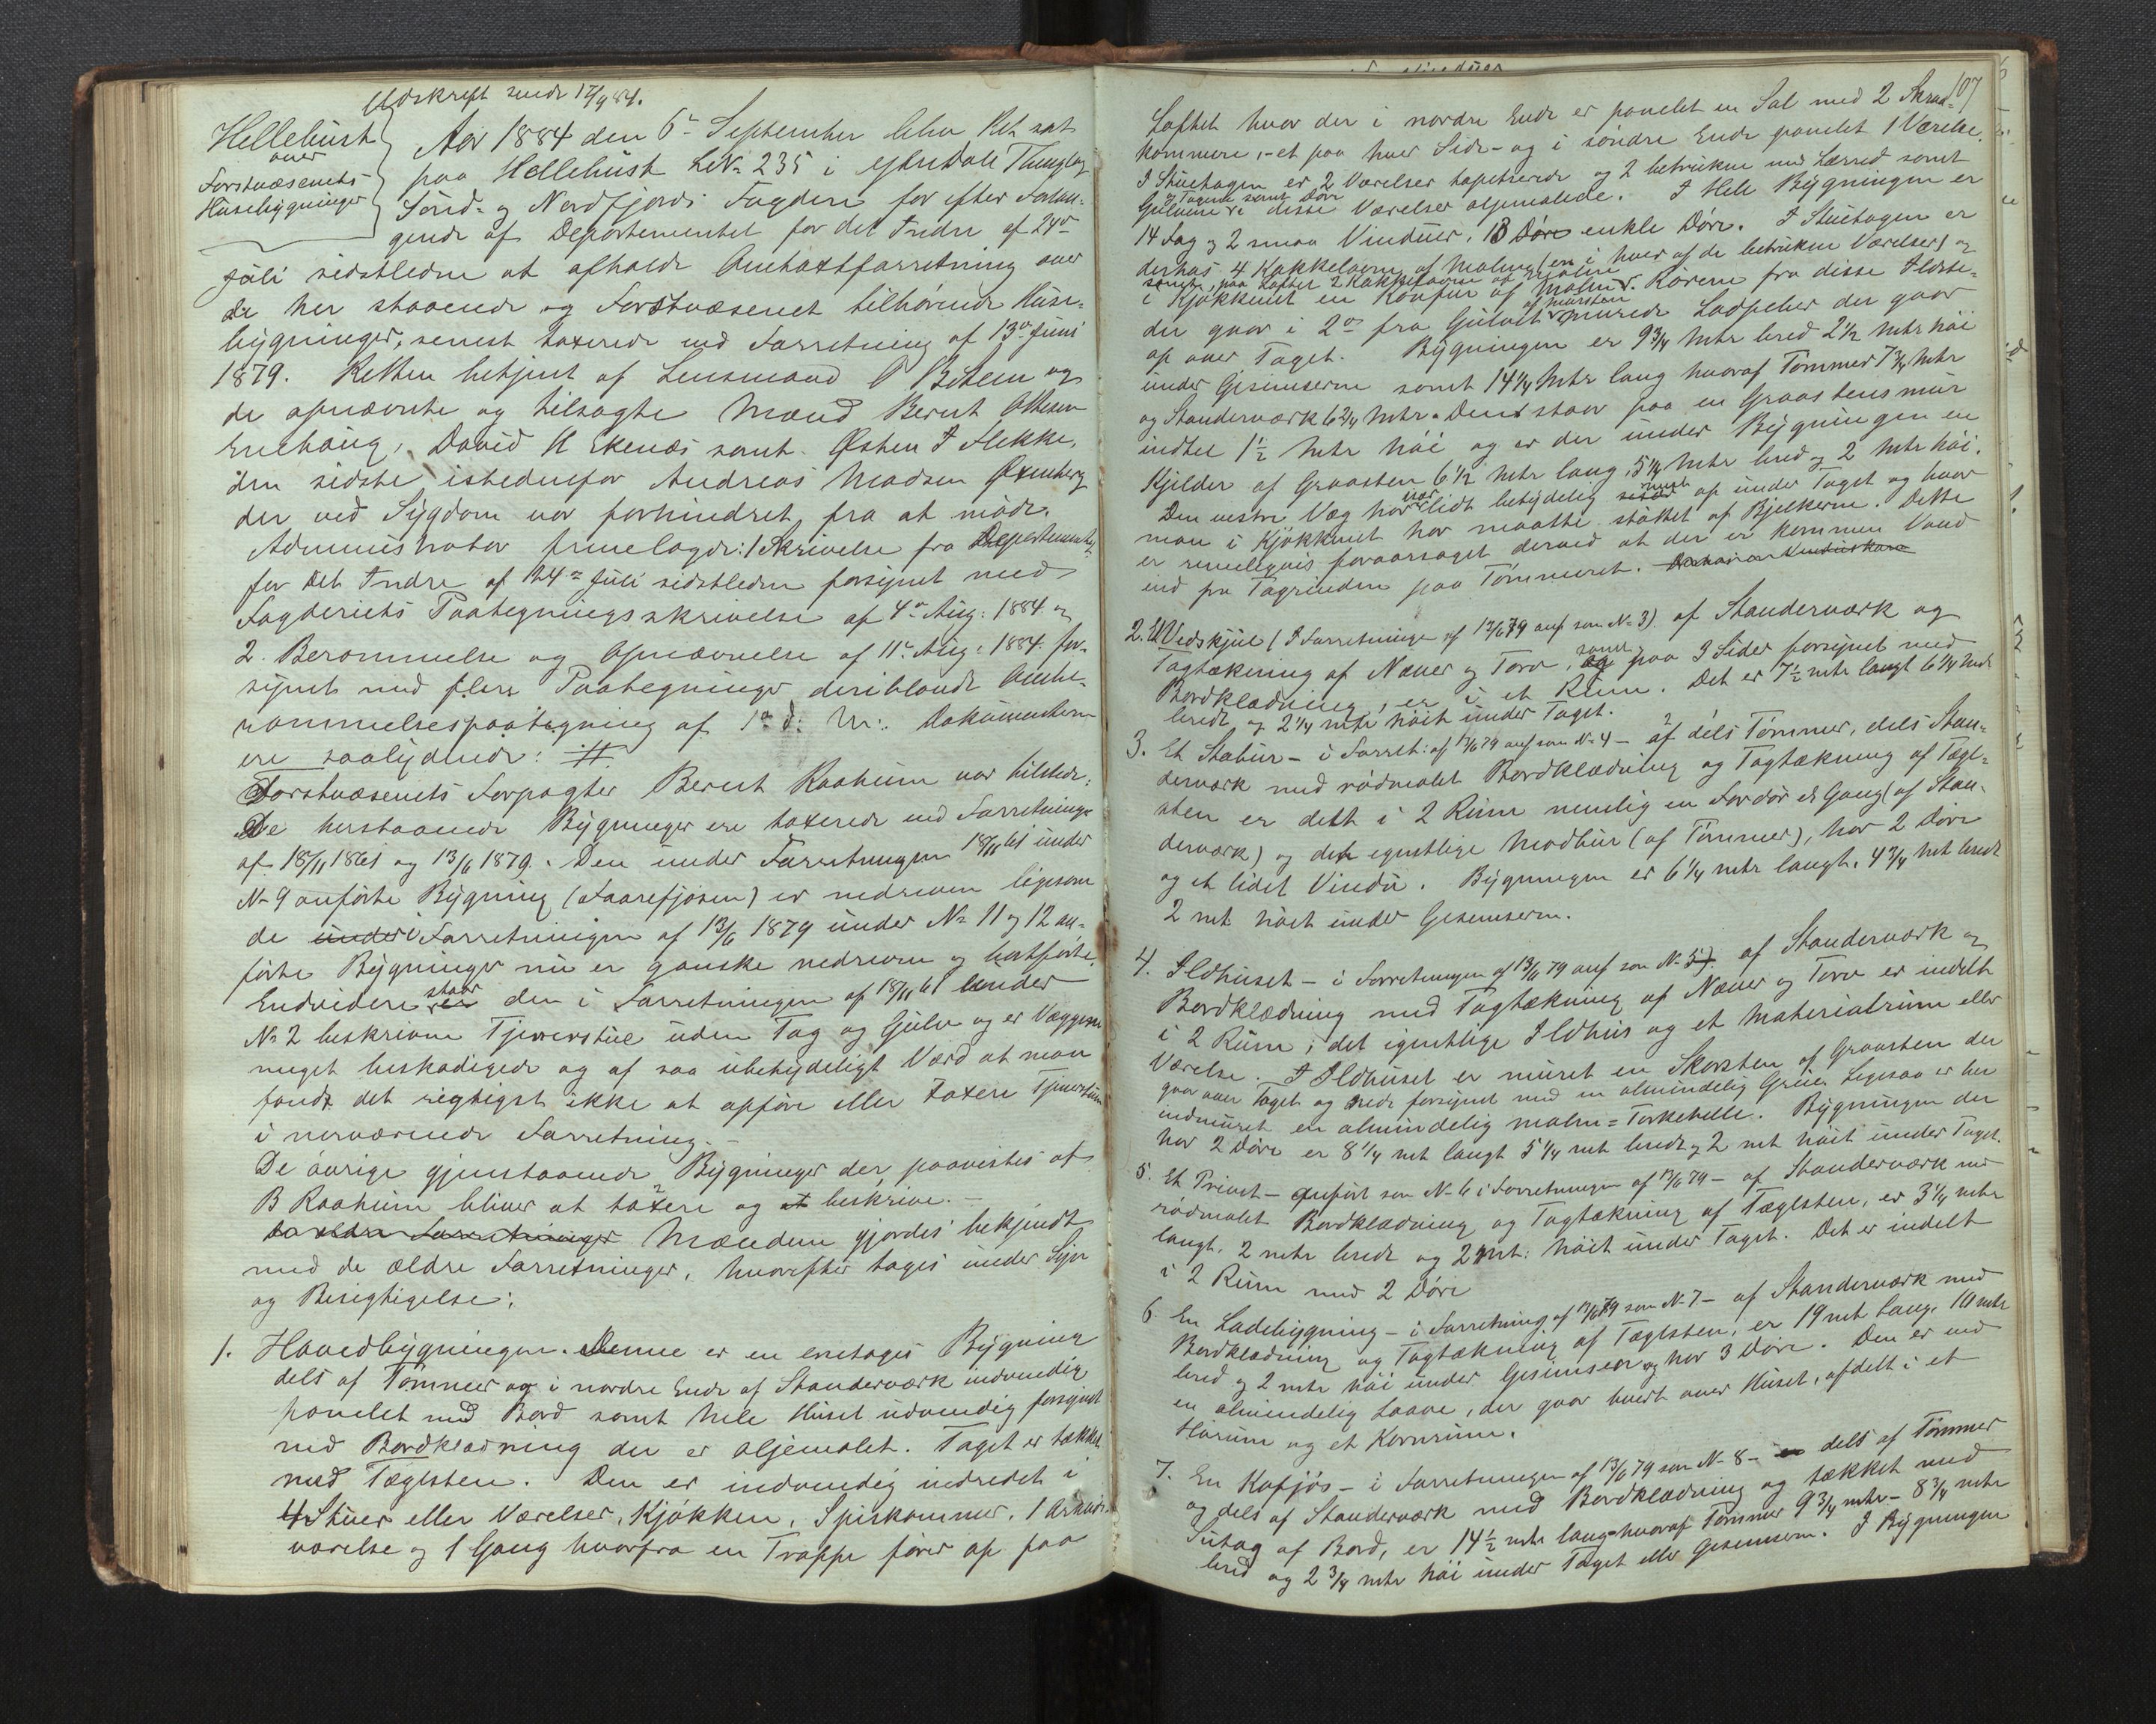 Udskrift sendt 17/9 84.
Hellebust
over
Forstvæsenets
Husebygninger
Aar 1884 den 6te September blev Ret sat
paa Hellebust LNo 235 i Ytredale Thinglag
Sønd- og Nordfjords Fogderi for efter Forlan-
gende af Departementet for det Indre af 24de
Juli sidstleden at afholde Omtaxtforretning over
de her staaende og Forstvæsenet tilhørende Huse-
bygninger, senest taxerede ved Forretning af 13de Juni
1879. Retten betjent af Lensmand
de opnævnte og tilsagte Mænd Bernt Ottesen
David A Ekenæs samt Østen I Flekke,
den sidste istedenfor Andreas Madsen Øxenberg
der ved Sygdom var forhindret fra at møde.
Administrator fremlagde: 1 Skrivelse fra Departementet
for det Indre af 24de Juli sidstleden forsynet med
Fogderiets Paategningsskrivelse af 4de Aug: 1884 og
2. Berammelse og Opnævnelse af 11te Aug: 1884 for-
synet med flere Paategninger deriblandt Ombe-
rammelsespaategning af 1ste d: M: Dokumenterne
ere saalydende: #
Forstvæsenets Forpagter Bernt Raaheim var tilstede.
De herstaaende Bygninger ere taxerede ved Forretninger
af 18/11 1861 og 13/6 1879. Den under Forretningen 18/11 61 under
No 9 anførte Bygning (Faarefjøsen) er nedreven ligesom
de under i Forretningen af 13/6 1879 under No 11 og 12 an-
førte Bygninger nu er ganske nedrevne og bortførte.
Endvidere er staar den i Forretningen af 18/11 61 under
No 2 beskrevne Tjenerstue uden Tag og Gulv og er Væggene
meget beskadigede og af saa ubetydeligt Værd at man
fandt det rigtigst ikke at opføre eller taxere Tjenerstuen
i nærværende Forretning.
De øvrige gjenstaaende Bygninger der paavistes af
B Raaheim bliver at taxere og at beskrive.
Mændene gjordes bekjendt
med de ældre Forretninger, hvorefter toges under Syn
og Besigtigelse:
1. Hovedbygningen. Denne er en enetages Bygning
dels af Tømmer og i nordre Ende af Standerværk indvendig
panelet med Bord samt hele Huset udvendig forsynet
med Bordklædning der er oljemalet. Taget er tækket
med Tægelsten. Den er indvendig indredet i
4 Stuer eller Værelser, Kjøkken, Spiskammer, 1
værelse og 1 Gang hvorfra en Trappe fører op paa
107
Loftet hvor der i nordre Ende er panelet en Sal med 2 Skraa-
kammere, - et paa hver Side - og i søndre Ende panelet 1 Værelse.
I Stuetagen er 2 Værelser tapetserede og 2 betrukne med Lærred samt
og Tagene samt Døre
Gulvene i disse Værelser oljemalede. I Hele Bygningen er
14 Fag og 2 smaa Vinduer, 13 Døre enkle Døre. I Stuetagen er
derhos 4 Kakkelovne af Malm (en i hver af de betrukne Værelser) og
samt paa Loftet 2 Kakkelovne af Malm
i Kjøkkenet en Komfur af Malm. Rørene fra disse Ildste-
der gaar i 2de fra Gulvet af Mursten murede Ladpeber der gaar
op over Taget. Bygningen er 9 3/4 Mtr bred 2 1/2 Mtr høi
under Gesimserne samt 14 1/4 Mtr lang hvoraf Tømmer 7 3/4 Mtr
og Standerværk 6 2/4 Mtr. Den staar paa en Graastensmur
indtil 1 1/2 Mtr høi og er der under Bygningen en
Kjelder af Graasten 6 1/2 Mtr lang, 5 1/4 Mtr bred og 2 Mtr høi.
Den vestre Væg har lidt betydelig op under Taget og hvor
man i Kjøkkenet har maatte støttet af Bjelkerne. Dette
er rimeligvis foraarsaget derved at der er kommen Vand
ind fra Tagrenden paa Tømmeret.
2. Et Vedskjul (I Forretninge af 13/6 79 anf som No 3) af Standerværk og
Tagtækning af Næver og Torv, og samt paa 3 Sider forsynet med
Bordklædning, er i et Rum. Det er 7 1/2 mtr langt 6 1/4 Mtr
bredt og 2 1/4 mtr høit under Taget.
3. Et Stabur - i Forret: af 13/6 79 anf som No 4 - af dels Tømmer, dels Stan-
derværk med rødmalet Bordklædning og Tagtækning af Tægl-
sten er delt i 2 Rum nemlig en Fordør el Gang (af Stan-
derværk) og det egentlige Madbur (af Tømmer), har 2 Døre
og et lidet Vindu. Bygningen er 6 1/4 mtr langt, 4 3/4 Mt bredt
2 mt høit under Gesimserne.
4. Ildhuset - i Forretningen af 13/6 79 anf som No 5 - af Standerværk og
Bordklædning med Tagtækning af Næver og Torv er indelt
i 2 Rum; det egentlige Ildhus og et Materialrum eller
Værelse. I Ildhuset er muret en Skorsten af Graasten der
gaar over Taget og nede forsynet med en almindelig Grue. Ligesaa er her
indmuret en almindelig malm = Tørkehelle. Bygningen der
har 2 Døre er 8 1/4 mt langt 5 1/4 mt bredt og 2 mt høit under Taget.
5. Et Privet - anført som No 6 i Forretningen af 13/6 79 - af Standerværk med
rødmalet Bordklædning og Tagtækning af Tæglsten, er 3 1/4 mtr
langt, 2 mtr bredt og 2 mt: høit under Taget. Det er indelt
i 2 Rum med 2 Døre
6 En Ladebygning - i Forretning af 13/6 79 som No 7 - af Standerværk med
Bordklædning og Tagtækning af Tæglsten, er 19 mt lang, 10 mtr
bred og 2 mtr høi under Gesimsen og har 3 Døre. Den er ved
en almindelig Laave, der gaar tvert over Huset, afdelt i et
Hørum og et Kornrum.
7. En Kofjøs - i Forretningen af 13/6 79 som No 8 - dels af Tømmer
og dels af Standerværk med Bordklædning og tækket med
Sutag af Bord, er 14 1/2 mtr lang hvoraf Tømmer 9 3/4 mtr - 8 3/4 mtr
bred og 2 3/4 mtr høi under Taget eller Gesimsen. I Bygningen